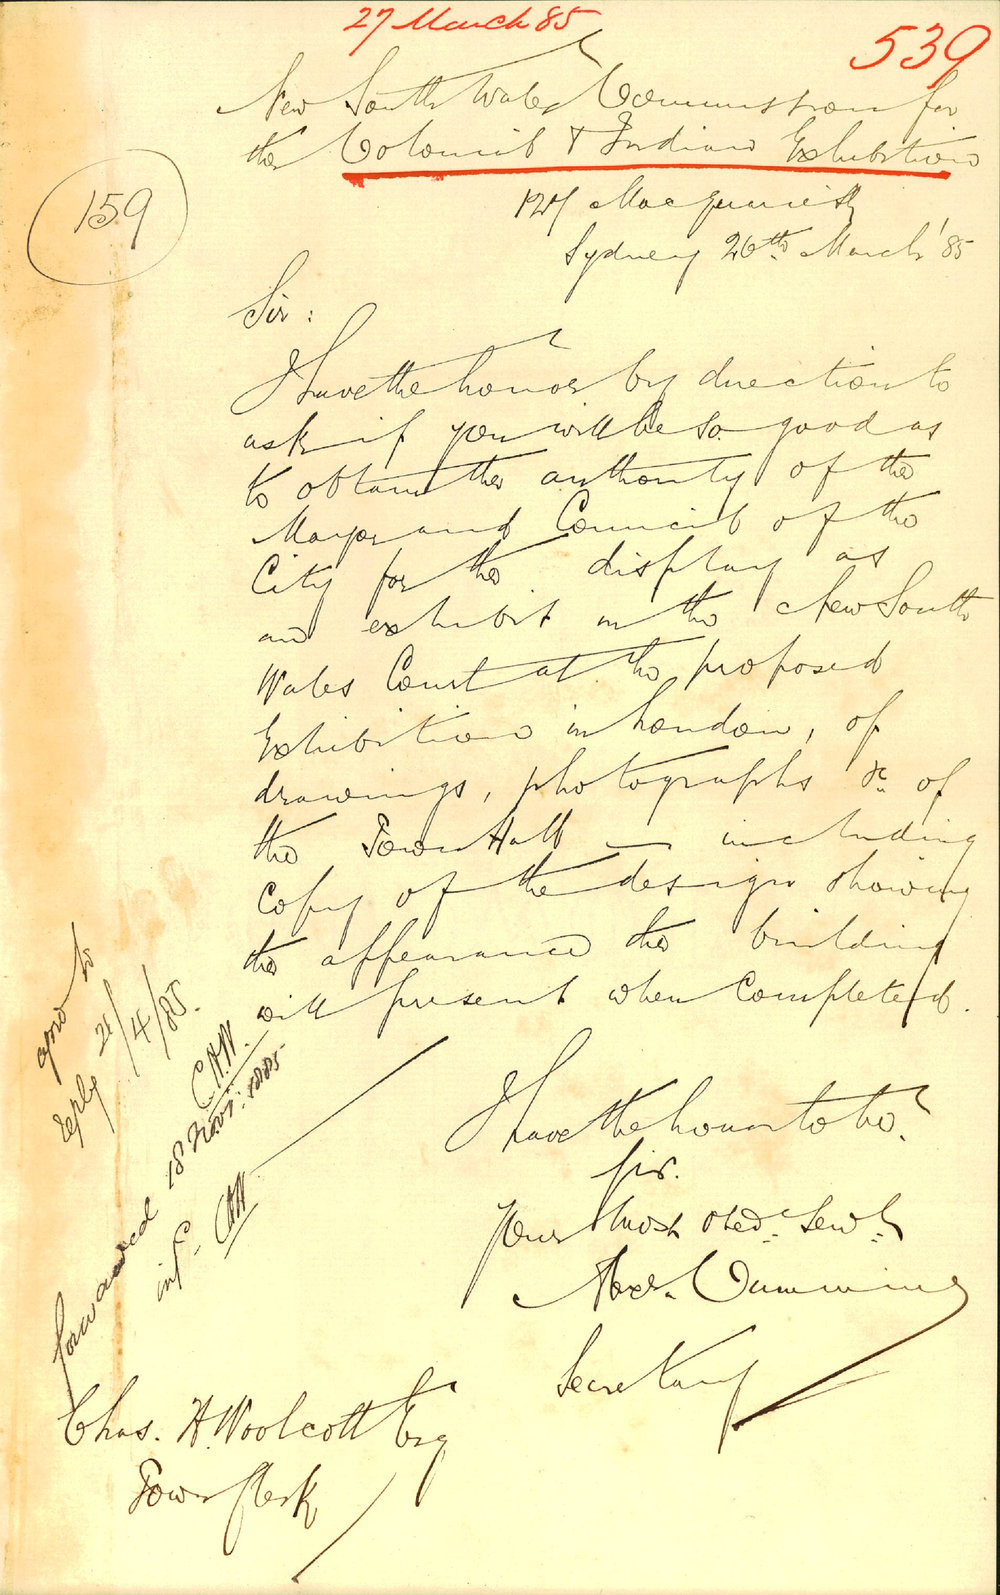 27 March 85
539
New South Wales Commission for
the Colonial & Indian Exhibition
159
Macquarie St
Sydney 26th March '85
Sir:
I have the honor by direction to
ask if you will be so good as
to obtain the authority of the
Mayor and Council of the
City for the display as
an exhibit in the New South
Wales Court at the proposed
Exhibition in London, of
drawings, photographs &c of
the Town Hall — including
copy of the design showing
the appearance the building
will present when completed.
I have the honor to be
Sir.
Your most obed. Serv.
Alexr. Cumming
Secretary
Chas. H. Woolcott Esq
Town Clerk
reply 21/4/85.
C.H.W.
forwarded 18 Nov: 1885
CHW.